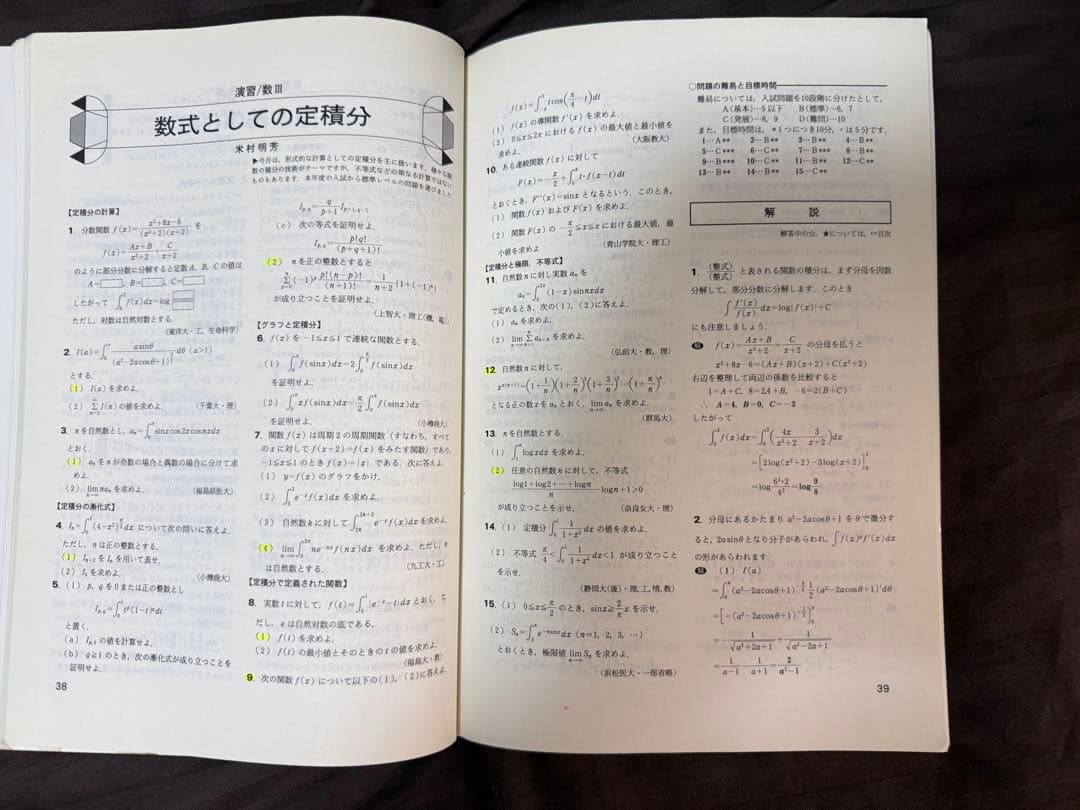 演習/数Ⅲ
数式としての定積分
米村明芳
▶今月は，形式的な計算としての定積分を主に扱います．様々な関
数の積分の技術がテーマですが，不等式などの単なる計算ではない
ものもあります．本年度の入試から標準レベルの問題を選びました
【定積分の計算】
1. 分数関数 f(x)=(x²+8x-6)/((x²+2)(x+2)) を
f(x)=(Ax+B)/(x²+2)+C/(x+2)
のように部分分数に分解すると定数 A, B, C の値は
A=□, B=□, C=□
したがって ∫₀² f(x)dx=log □/□
ただし，対数は自然対数とする．
(東洋大・工，生命科学)
2. I(a)=∫₀^π asinθ/(a²-2acosθ+1)^{3/2} dθ (a>1)
とする．
(1) I(a)を求めよ．
(2) Σ_{n=2}^∞ I(n) の値を求めよ．
(千葉大・理)
3. nを自然数とし，aₙ=∫₀^π sinxcos2xcosnxdx
とおく．
(1) aₙをnが奇数の場合と偶数の場合に分けて求
めよ．
(2) lim_{n→∞} naₙ を求めよ．
(福島県医大)
【定積分の漸化式】
4. Iₙ=∫₀²(4-x²)^{n/2}dx について次の問いに答えよ．
ただし，nは正の整数とする．
(1) Iₙ₊₂をIₙを用いて表せ．
(2) I₅を求めよ．
(小樽商大)
5. (1) p, qを0または正の整数とし
I_{p,q}=∫₀¹ tᵖ(1-t)^q dt
と置く．
(a) I_{p,1}の値を計算せよ．
(b) q≧1のとき，次の漸化式が成り立つことを
証明せよ．
38
I_{p,q}=q/(p+1) I_{p+1,q-1}
(c) 次の等式を証明せよ．
I_{p,q}=p!q!/(p+q+1)!
(2) nを正の整数とすると
Σ_{p=0}^n (-1)^p p!(n-p)!/(n+1)!=1/(n+2){1+(-1)ⁿ}
が成り立つことを証明せよ．
(上智大・理工(機，電))
【グラフと定積分】
6. f(x)を -1≦x≦1 で連続な関数とする．
(1) ∫₀^π f(sinx)dx=2∫₀^{π/2} f(sinx)dx
を証明せよ．
(2) ∫₀^π xf(sinx)dx=π/2∫₀^π f(sinx)dx
を証明せよ．
(小樽商大)
7. 関数f(x)は周期2の周期関数(すなわち，すべて
のxに対してf(x+2)=f(x)をみたす関数)であり，
-1≦x≦1のときf(x)=|x|である．次に答えよ．
(1) y=f(x)のグラフをかけ．
(2) ∫₀² e⁻ˣf(x)dx を求めよ．
(3) 自然数kに対して∫_{2k}^{2k+2} e⁻ˣf(x)dxを求めよ．
(4) lim_{n→∞}∫₀^{2π} ne⁻ⁿˣf(nx)dx を求めよ．ただし，n
は自然数とする．
(九工大・工)
【定積分で定義された関数】
8. 実数tに対して，f(t)=∫₀¹|e⁻ˣ-t|dxとおく．た
だし，eは自然対数の底である．
(1) f(t)を求めよ．
(2) f(t)の最小値とそのときのtの値を求めよ．
(福島大・教)
9. 次の関数f(x)について以下の(1)，(2)に答えよ．
f(x)=∫₋ₓˣ tcos(π/4-t)dt
(1) f(x)の導関数f′(x)を求めよ．
(2) 0≦x≦2πにおけるf(x)の最大値と最小値を
求めよ．
(大阪教大)
10. ある連続関数f(x)に対して
F(x)=-π/2+∫₀ˣ t・f(x-t)dt
とおくとき，F″(x)=sinxとなるという．このとき，
(1) 関数f(x)およびF(x)を求めよ．
(2) 関数F(x)の -π/2≦x≦πにおける最大値，最
小値を求めよ
(青山学院大・理工)
【定積分と極限，不等式】
11. 自然数nに対し実数aₙを
aₙ=∫₀^{2π}(1-x)sinnxdx
で定めるとき，次の(1)，(2)に答えよ．
(1) aₙを求めよ．
(2) lim_{n→∞}Σ_{k=1}^n aₙ₊ₖを求めよ．
(弘前大・教，理)
12. 自然数nに対して，
x^{n(n+1)}=(1+1/n)¹(1+2/n)²(1+3/n)³…(1+n/n)ⁿ
となる正の数xをaₙとおく．lim_{n→∞}aₙを求めよ．
(群馬大)
13. nを自然数とする．
(1) ∫₁ⁿ logxdxを求めよ．
(2) 任意の自然数nに対して，不等式
(log1+log2+…+logn)/n-logn+1>0
が成り立つことを示せ．
(奈良女大・理)
14. (1) 定積分∫₀¹ 1/(1+x²)dxの値を求めよ．
(2) 不等式 π/4<∫₀¹ 1/(1+x⁴)dx<1 が成り立つこと
を示せ．
(静岡大(後)・理，工，情，教)
15. (1) 0≦x≦π/2のとき，sinx≧2/π x を示せ．
(2) Sₙ=∫₀^π e^{-nsinx}dx (n=1, 2, 3, …)
とおくとき，極限値 lim_{n→∞} Sₙ を求めよ．
(浜松医大・一部省略)
○問題の難易と目標時間
難易については，入試問題を10段階に分けたとして，
A(基本)…5以下 B(標準)…6, 7
C(発展)…8, 9 D(難問)…10
また，目標時間は，*1つにつき10分，○は5分です．
1…A** 2…B** 3…B** 4…B**
5…C*** 6…B*** 7…B**** 8…B***
9…B*** 10…B** 11…B** 12…C**
13…B** 14…B** 15…C**
解 説
解答中の☆，★については，☞目次
1. (整式)/(整式) と表される関数の積分は，まず分母を因数
分解して，部分分数に分解します．このとき
∫f′(x)/f(x) dx=log|f(x)|+C
にも注意しましょう．
解 f(x)=(Ax+B)/(x²+2)+C/(x+2) の分母を払うと
x²+8x-6=(Ax+B)(x+2)+C(x²+2)
右辺を整理して両辺の係数を比較すると
1=A+C, 8=2A+B, -6=2(B+C)
∴ A=4, B=0, C=-3
したがって
∫₀² f(x)dx=∫₀²(4x/(x²+2)-3/(x+2))dx
=[2log(x²+2)-3log(x+2)]₀²
=log 6²・2/4³=log 9/8
2. 分母にあるかたまり a²-2acosθ+1 をθで微分す
ると，2asinθとなり分子があらわれ，∫f(x)ᵅf′(x)dx
の形があらわれます．
解 (1) I(a)
=∫₀^π(a²-2acosθ+1)^{-3/2} 1/2(a²-2acosθ+1)′dθ
=[-(a²-2acosθ+1)^{-1/2}]₀^π
=-1/√(a²+2a+1)+1/√(a²-2a+1)
=1/(a-1)-1/(a+1)=2/(a²-1)
39